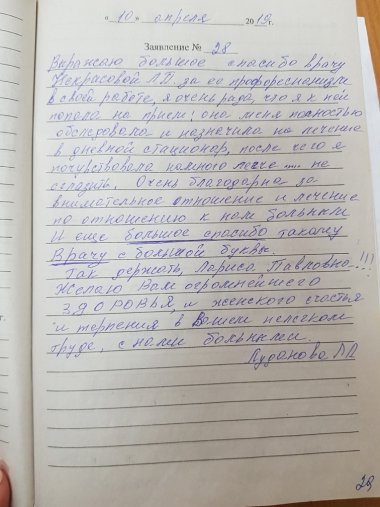 « 10 » апреля 2019г.
Заявление № 28
Выражаю большое спасибо врачу
Некрасовой Л.П. за ее профоресианализм
в своей работе, я очень рада, что я к ней
попала на прием; она меня полностью
обследовала и назначила на лечение
в дневной стационар, после чего я
почувствовала намного легче .... не
сглазить. Очень благодарна за
внимательное отношение и лечение
по отношению к нам больным
И еще большое спасибо такому
Врачу с большой буквы.
Так держать, Лариса Павловна!!!
Желаю Вам огромнейшего
ЗДОРОВЬЯ, и женского счастья
и терпения в Вашем нелегком
труде, с нами больными.
29